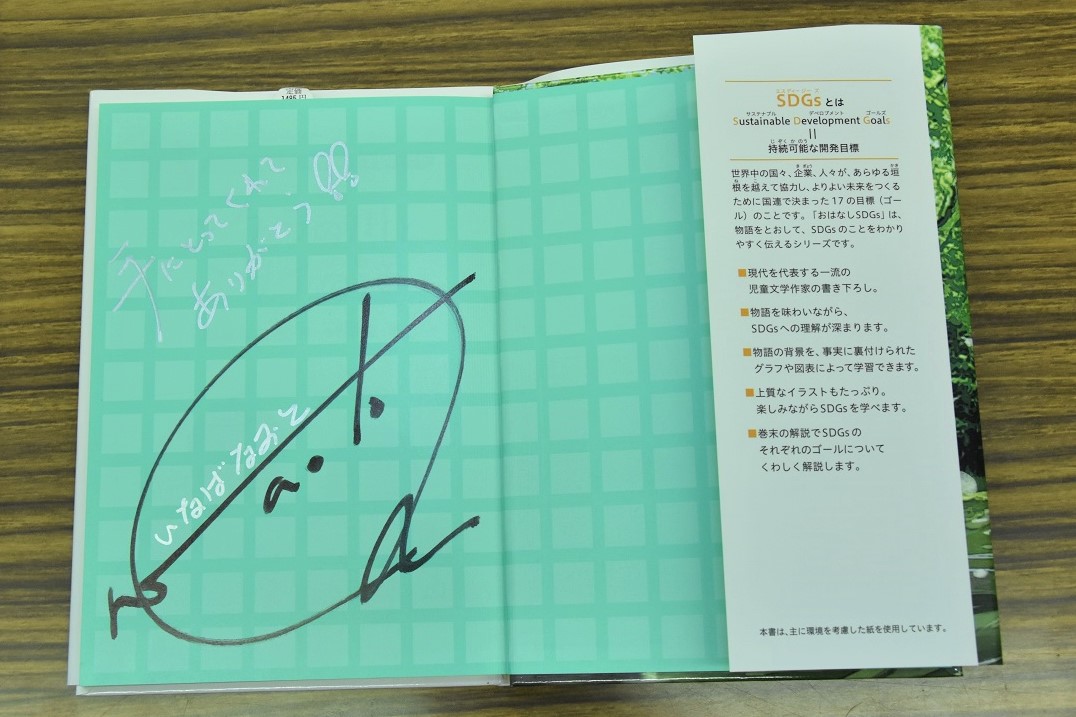 定価
1485円
手にとってくれて
ありがとう!!
いなばなおと
エスディージーズ
SDGsとは
サステナブル デベロプメント ゴールズ
Sustainable Development Goals
||
じぞくかのう
持続可能な開発目標
世界中の国々、企業、人々が、あらゆる垣
根を越えて協力し、よりよい未来をつくる
ために国連で決まった17の目標（ゴー
ル）のことです。「おはなしSDGs」は、
物語をとおして、SDGsのことをわかり
やすく伝えるシリーズです。
■現代を代表する一流の
児童文学作家の書き下ろし。
■物語を味わいながら、
SDGsへの理解が深まります。
■物語の背景を、事実に裏付けられた
グラフや図表によって学習できます。
■上質なイラストもたっぷり。
楽しみながらSDGsを学べます。
■巻末の解説でSDGsの
それぞれのゴールについて
くわしく解説します。
本書は、主に環境を考慮した紙を使用しています。